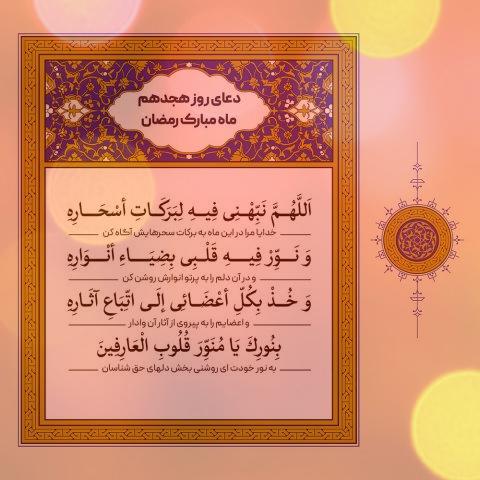 دعای روز هجدهم
ماه مبارک رمضان
اَللَّهُمَّ نَبِّهْنِی فِیهِ لِبَرَکَاتِ أَسْحَارِهِ
خدایا مرا در این ماه به برکات سحرهایش آگاه کن
وَ نَوِّرْ فِیهِ قَلْبِی بِضِیَاءِ أَنْوَارِهِ
و در آن دلم را به پرتو انوارش روشن کن
وَ خُذْ بِکُلِّ أَعْضَائِی إِلَی اتِّبَاعِ آثَارِهِ
و اعضایم را به پیروی از آثار آن وادار
بِنُورِکَ یَا مُنَوِّرَ قُلُوبِ الْعَارِفِینَ
به نور خودت ای روشنی بخش دلهای حق شناسان